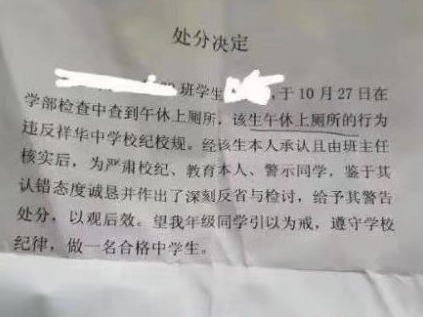 处分决定
班学生 ，于10月27日在
学部检查中查到午休上厕所，该生午休上厕所的行为
违反祥华中学校纪校规。经该生本人承认且由班主任
核实后，为严肃校纪、教育本人、警示同学，鉴于其
认错态度诚恳并作出了深刻反省与检讨，给予其警告
处分，以观后效。望我年级同学引以为戒，遵守学校
纪律，做一名合格中学生。